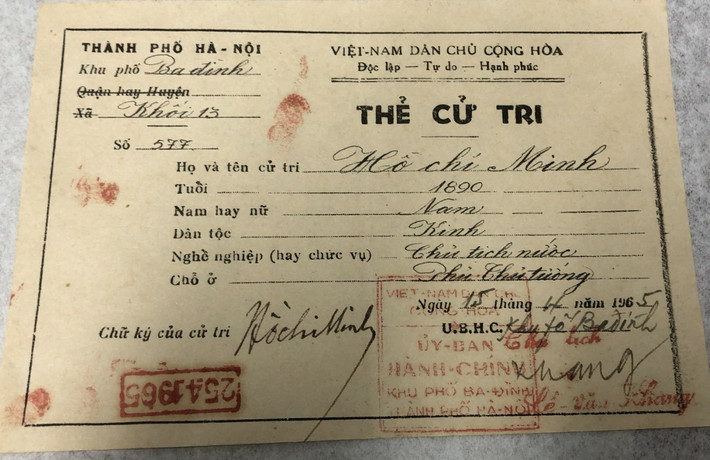 THÀNH PHỐ HÀ-NỘI
Khu phố Ba đình
Quận hay Huyện
Xã Khối 13
Số 577
VIỆT-NAM DÂN CHỦ CỘNG HÒA
Độc lập — Tự do — Hạnh phúc
THẺ CỬ TRI
Họ và tên cử tri Hồ chí Minh
Tuổi 1890
Nam hay nữ Nam
Dân tộc Kinh
Nghề nghiệp (hay chức vụ) Chủ tịch nước
Chỗ ở Phủ Thủ tướng
Ngày 15 tháng 4 năm 1965
U.B.H.C. Khu fố Ba đình
Chủ tịch
Chữ ký của cử tri Hồ Chí Minh
VIỆT-NAM DÂN CHỦ
CỘNG HÒA
ỦY-BAN
HÀNH-CHÍNH
KHU PHỐ BA-ĐÌNH
THÀNH PHỐ HÀ-NỘI
Khang
Lê-văn-Khang
25 4 1965